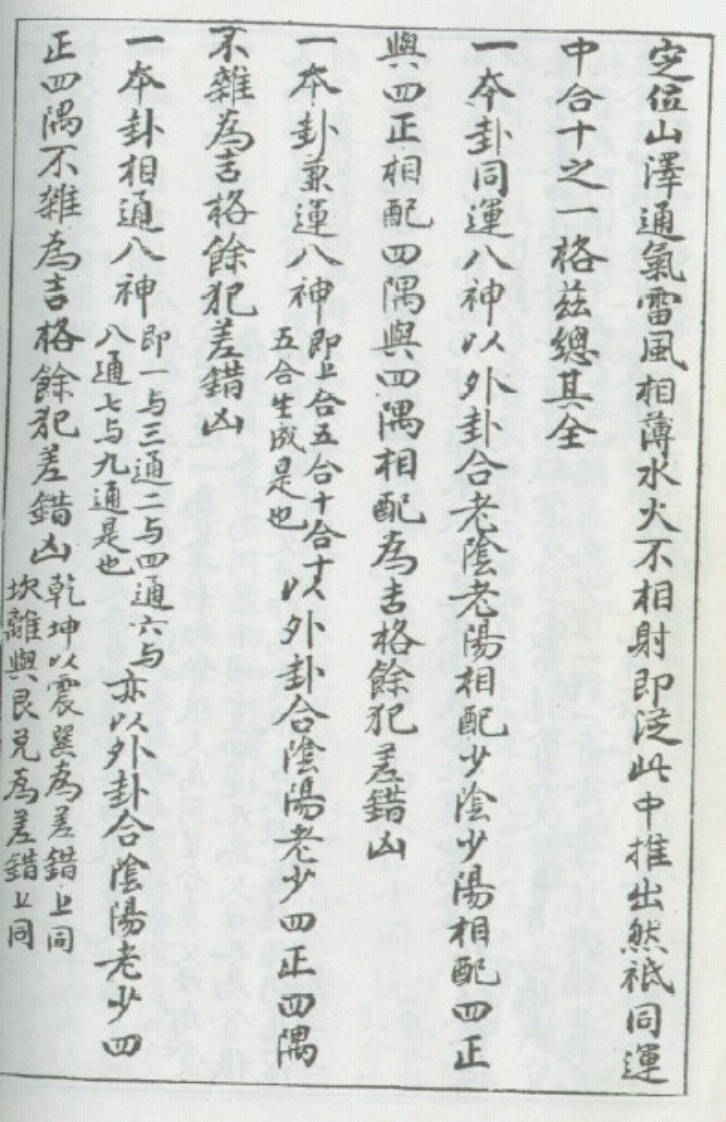 定位山澤通氣雷風相薄水火不相射即從此中推出然祗同運
中合十之一格茲總其全
一本卦同運八神以外卦合老陰老陽相配少陰少陽相配四正
與四正相配四隅與四隅相配為吉格餘犯差錯凶
一本卦兼運八神
即上合五合十合十
五合生成是也
以外卦合陰陽老少四正四隅
不雜為吉格餘犯差錯凶
一本卦相通八神
即一与三通二与四通六与
八通七与九通是也
亦以外卦合陰陽老少四
正四隅不雜為吉格餘犯差錯凶
乾坤以震巽為差錯上同
坎離與艮兌為差錯上同